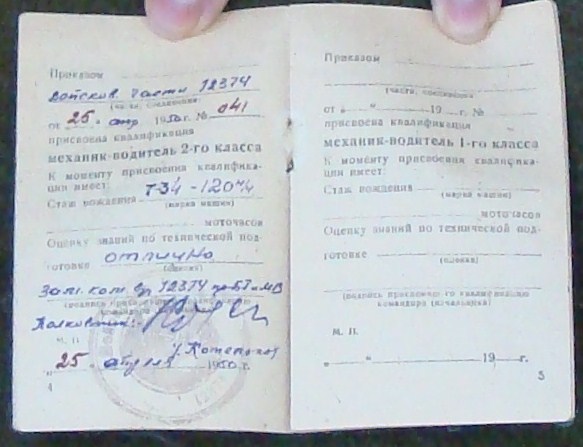 Приказом
войсков. части 12374
(части, соединения)
от "25" апр 1950 г. № 041
присвоена квалификация
механик-водитель 2-го класса
К моменту присвоения квалифика-
ции имеет
Т-34 -
Стаж вождения
(марка машин)
моточасов
Оценку знаний по технической под-
готовке отлично
(оценка)
Зам. ком. 12374 по БТ и МВ
(подпись присвоившего квалификацию
Полковник
М. П.
"25" апреля 1950 г.
4
Приказом
(части, соединения)
от „ “ 19 г. №
присвоена квалификация
механик-водитель 1-го класса
К моменту присвоения квалифика-
ции имеет:
Стаж вождения
(марка машин)
моточасов
Оценку знаний по технической под-
готовке
(оценка)
(подпись присвоившего квалификацию
командира (начальника)
М. П.
„ “ 19 г.
5